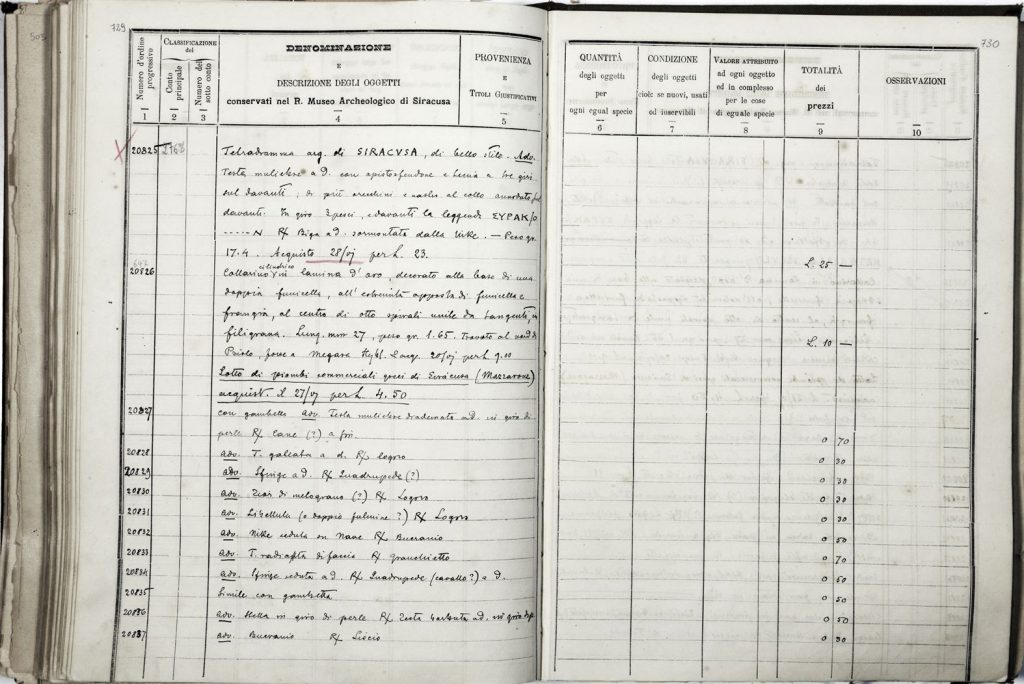 729
Numero d'ordine progressivo
Classificazione del
Conto principale
Numero del sotto conto
DENOMINAZIONE
E
DESCRIZIONE DEGLI OGGETTI
conservati nel R. Museo Archeologico di Siracusa
PROVENIENZA
E
Titoli Giustificativi
1 2 3 4 5
20825 Tetradramma arg. di SIRACVSA, di bello stile. Adv.
Testa muliebre a d. con opistosfendone e tenia a tre giri
sul davanti; di più orecchini e nastro al collo annodato sul
davanti. In giro 2 pesci, e davanti la leggenda ΣΥΡΑΚ/Ο
----- N R/ Biga a d. sormontata dalla Nike. — Peso gr.
17.4. Acquisto 28/VJ per L. 23.
20826 Collarino cilindrico in lamina d'oro, decorato alla base di una
doppia funicella, all'estremità opposta di funicella e
frangia, al centro di otto spirali unite da tangenti, in
filigrana. Lung. mm 27, peso gr. 1.65. Trovato al nord di
Priolo, forse a Megara Hybl. 20/VJ per L 9.00
Lotto di piombi commerciali greci di Siracusa (Mazzarone)
acquist. il 27/VJ per L 4.50
20827 con gambetto adv. Testa muliebre diademata a d. in giro di
perle R/ Cane (?) a sin.
20828 adv. T. galeata a d. R/ logoro
20829 adv. Sfinge a d. R/ Quadrupede (?)
20830 adv. Fior di melograno (?) R/ Logoro
20831 adv. Libellula (o doppio fulmine?) R/ Logoro
20832 adv. Nike seduta su Nave R/ Bucranio
20833 adv. T. radiata di faccia R/ granchietto
20834 adv. Sfinge seduta a d. R/ Quadrupede (cavallo?) a d.
20835 Simile con gambetta
20836 adv. Stella in giro di perle R/ Testa barbuta a d. in giro
20837 adv. Bucranio R/ Liscio
730
QUANTITÀ
degli oggetti
per
ogni egual specie
CONDIZIONE
degli oggetti
cioè: se nuovi, usati
od inservibili
Valore attribuito
ad ogni oggetto
od in complesso
per le cose
di eguale specie
TOTALITÀ
dei
prezzi
OSSERVAZIONI
6 7 8 9 10
L. 25 —
L. 10 —
0 70
0 30
0 30
0 30
0 30
0 50
0 70
0 50
0 50
0 50
0 30